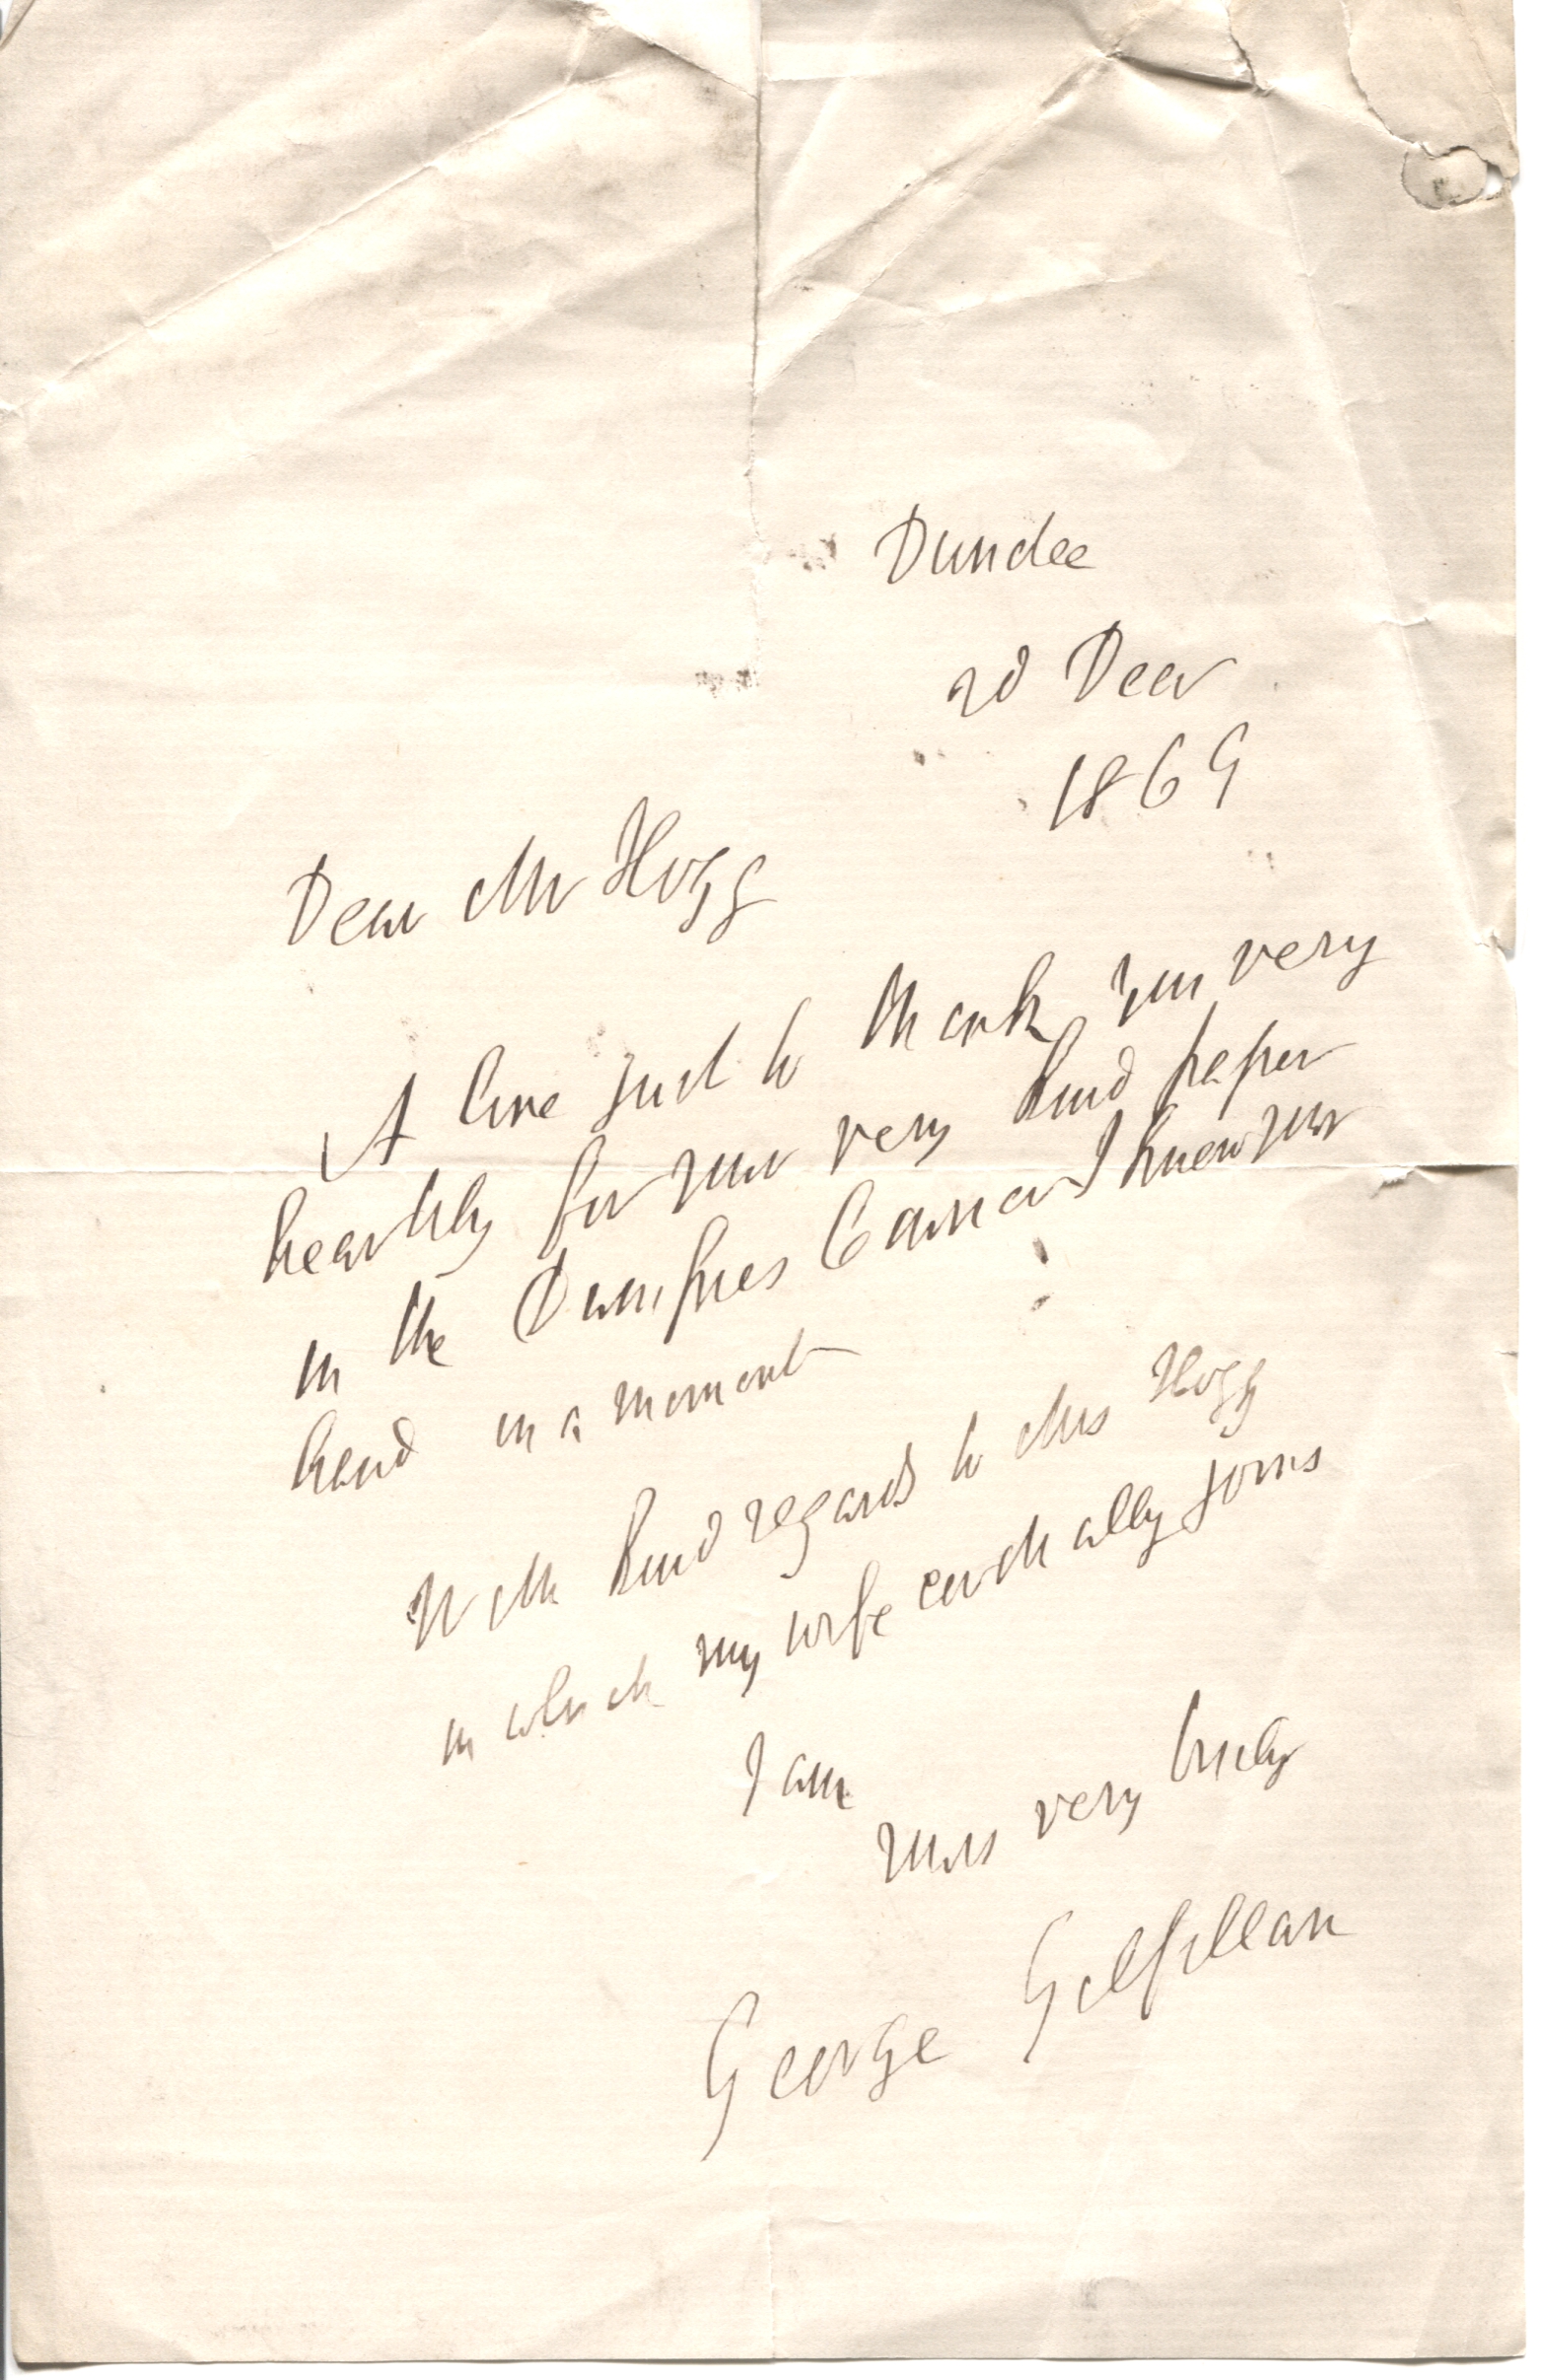 Dundee
2d Decr
1869
Dear Mr Hogg
A line just to thank you very
heartily for your very kind paper
in the Dumfries I knew your
hand in a moment
With kind regards to Mrs Hogg
in which my wife cordially joins
I am
Yours very truly
George Gilfillan